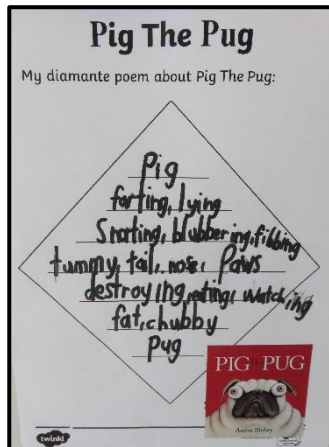 Pig The Pug
My diamante poem about Pig The Pug:
Pig
farting, lying
Snorting, blubbering, fibbing
tummy, tail, nose, Paws
destroying, eating, watching
fat, chubby
Pug
PIG the PUG
Aaron Blabey
twinkl